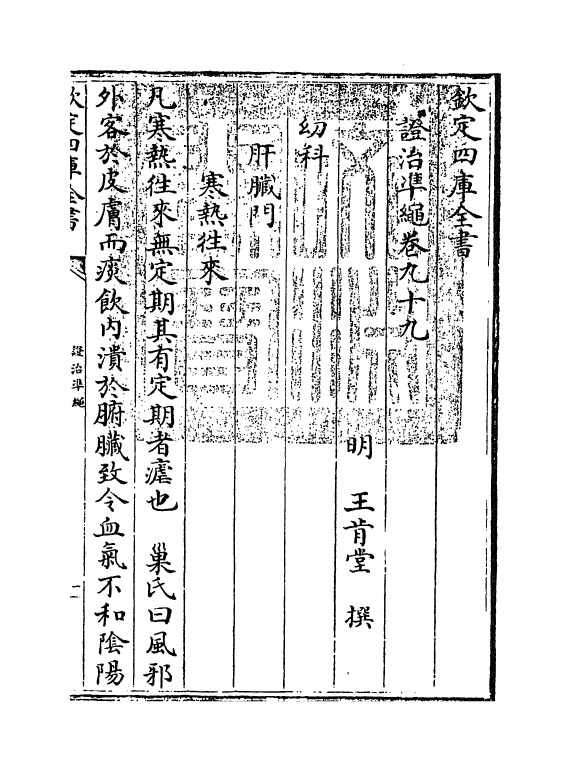 欽定四庫全書
證治準繩卷九十九
明 王肯堂 撰
幼科
肝臟門
寒熱往來
凡寒熱往來無定期其有定期者瘧也 巢氏曰風邪
外客於皮膚而痰飲内潰於腑臟致令血氣不和陰陽
欽定四庫全書
證治準繩
一